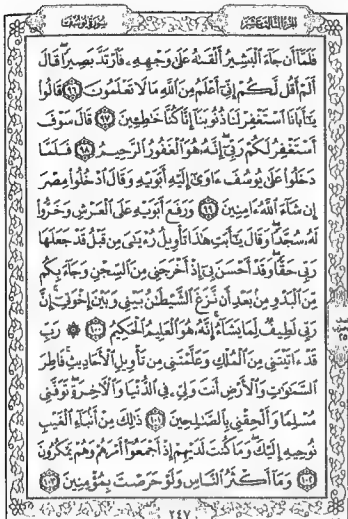 الجزء الثالث عشر سورة يوسف
فَلَمَّا أَن جَآءَ ٱلْبَشِيرُ أَلْقَىٰهُ عَلَىٰ وَجْهِهِۦ فَٱرْتَدَّ بَصِيرًا قَالَ
أَلَمْ أَقُل لَّكُمْ إِنِّىٓ أَعْلَمُ مِنَ ٱللَّهِ مَا لَا تَعْلَمُونَ ٩٦ قَالُوا۟
يَٰٓأَبَانَا ٱسْتَغْفِرْ لَنَا ذُنُوبَنَآ إِنَّا كُنَّا خَٰطِـِٔينَ ٩٧ قَالَ سَوْفَ
أَسْتَغْفِرُ لَكُمْ رَبِّىٓ إِنَّهُۥ هُوَ ٱلْغَفُورُ ٱلرَّحِيمُ ٩٨ فَلَمَّا
دَخَلُوا۟ عَلَىٰ يُوسُفَ ءَاوَىٰٓ إِلَيْهِ أَبَوَيْهِ وَقَالَ ٱدْخُلُوا۟ مِصْرَ
إِن شَآءَ ٱللَّهُ ءَامِنِينَ ٩٩ وَرَفَعَ أَبَوَيْهِ عَلَى ٱلْعَرْشِ وَخَرُّوا۟
لَهُۥ سُجَّدًا وَقَالَ يَٰٓأَبَتِ هَٰذَا تَأْوِيلُ رُءْيَٰىَ مِن قَبْلُ قَدْ جَعَلَهَا
رَبِّى حَقًّا وَقَدْ أَحْسَنَ بِىٓ إِذْ أَخْرَجَنِى مِنَ ٱلسِّجْنِ وَجَآءَ بِكُم
مِّنَ ٱلْبَدْوِ مِنۢ بَعْدِ أَن نَّزَغَ ٱلشَّيْطَٰنُ بَيْنِى وَبَيْنَ إِخْوَتِىٓ إِنَّ
رَبِّى لَطِيفٌ لِّمَا يَشَآءُ إِنَّهُۥ هُوَ ٱلْعَلِيمُ ٱلْحَكِيمُ ١٠٠ ۞ رَبِّ
قَدْ ءَاتَيْتَنِى مِنَ ٱلْمُلْكِ وَعَلَّمْتَنِى مِن تَأْوِيلِ ٱلْأَحَادِيثِ فَاطِرَ
ٱلسَّمَٰوَٰتِ وَٱلْأَرْضِ أَنتَ وَلِىِّۦ فِى ٱلدُّنْيَا وَٱلْءَاخِرَةِ تَوَفَّنِى
مُسْلِمًا وَأَلْحِقْنِى بِٱلصَّٰلِحِينَ ١٠١ ذَٰلِكَ مِنْ أَنۢبَآءِ ٱلْغَيْبِ
نُوحِيهِ إِلَيْكَ وَمَا كُنتَ لَدَيْهِمْ إِذْ أَجْمَعُوٓا۟ أَمْرَهُمْ وَهُمْ يَمْكُرُونَ
١٠٢ وَمَآ أَكْثَرُ ٱلنَّاسِ وَلَوْ حَرَصْتَ بِمُؤْمِنِينَ ١٠٣
٢٤٧